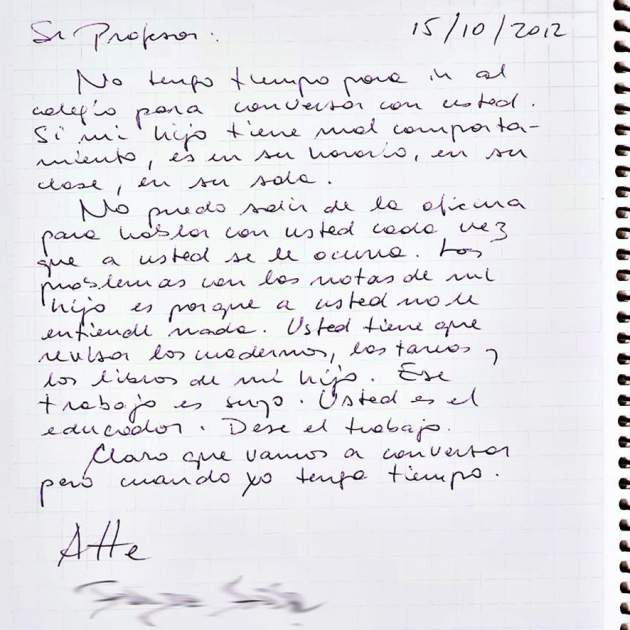 Sr Profesor:
15/10/2012
No tengo tiempo para ir al
colegio para conversar con usted.
Si mi hijo tiene mal comporta-
miento, es en su horario, en su
clase, en su sala.
No puedo salir de la oficina
para hablar con usted cada vez
que a usted se le ocurra. Los
problemas con las notas de mi
hijo es porque a usted no le
entiende nada. Usted tiene que
revisar los cuadernos, las tareas y
los libros de mi hijo. Ese
trabajo es suyo. Usted es el
educador. Dese el trabajo.
Claro que vamos a conversar
pero cuando yo tenga tiempo.
Atte